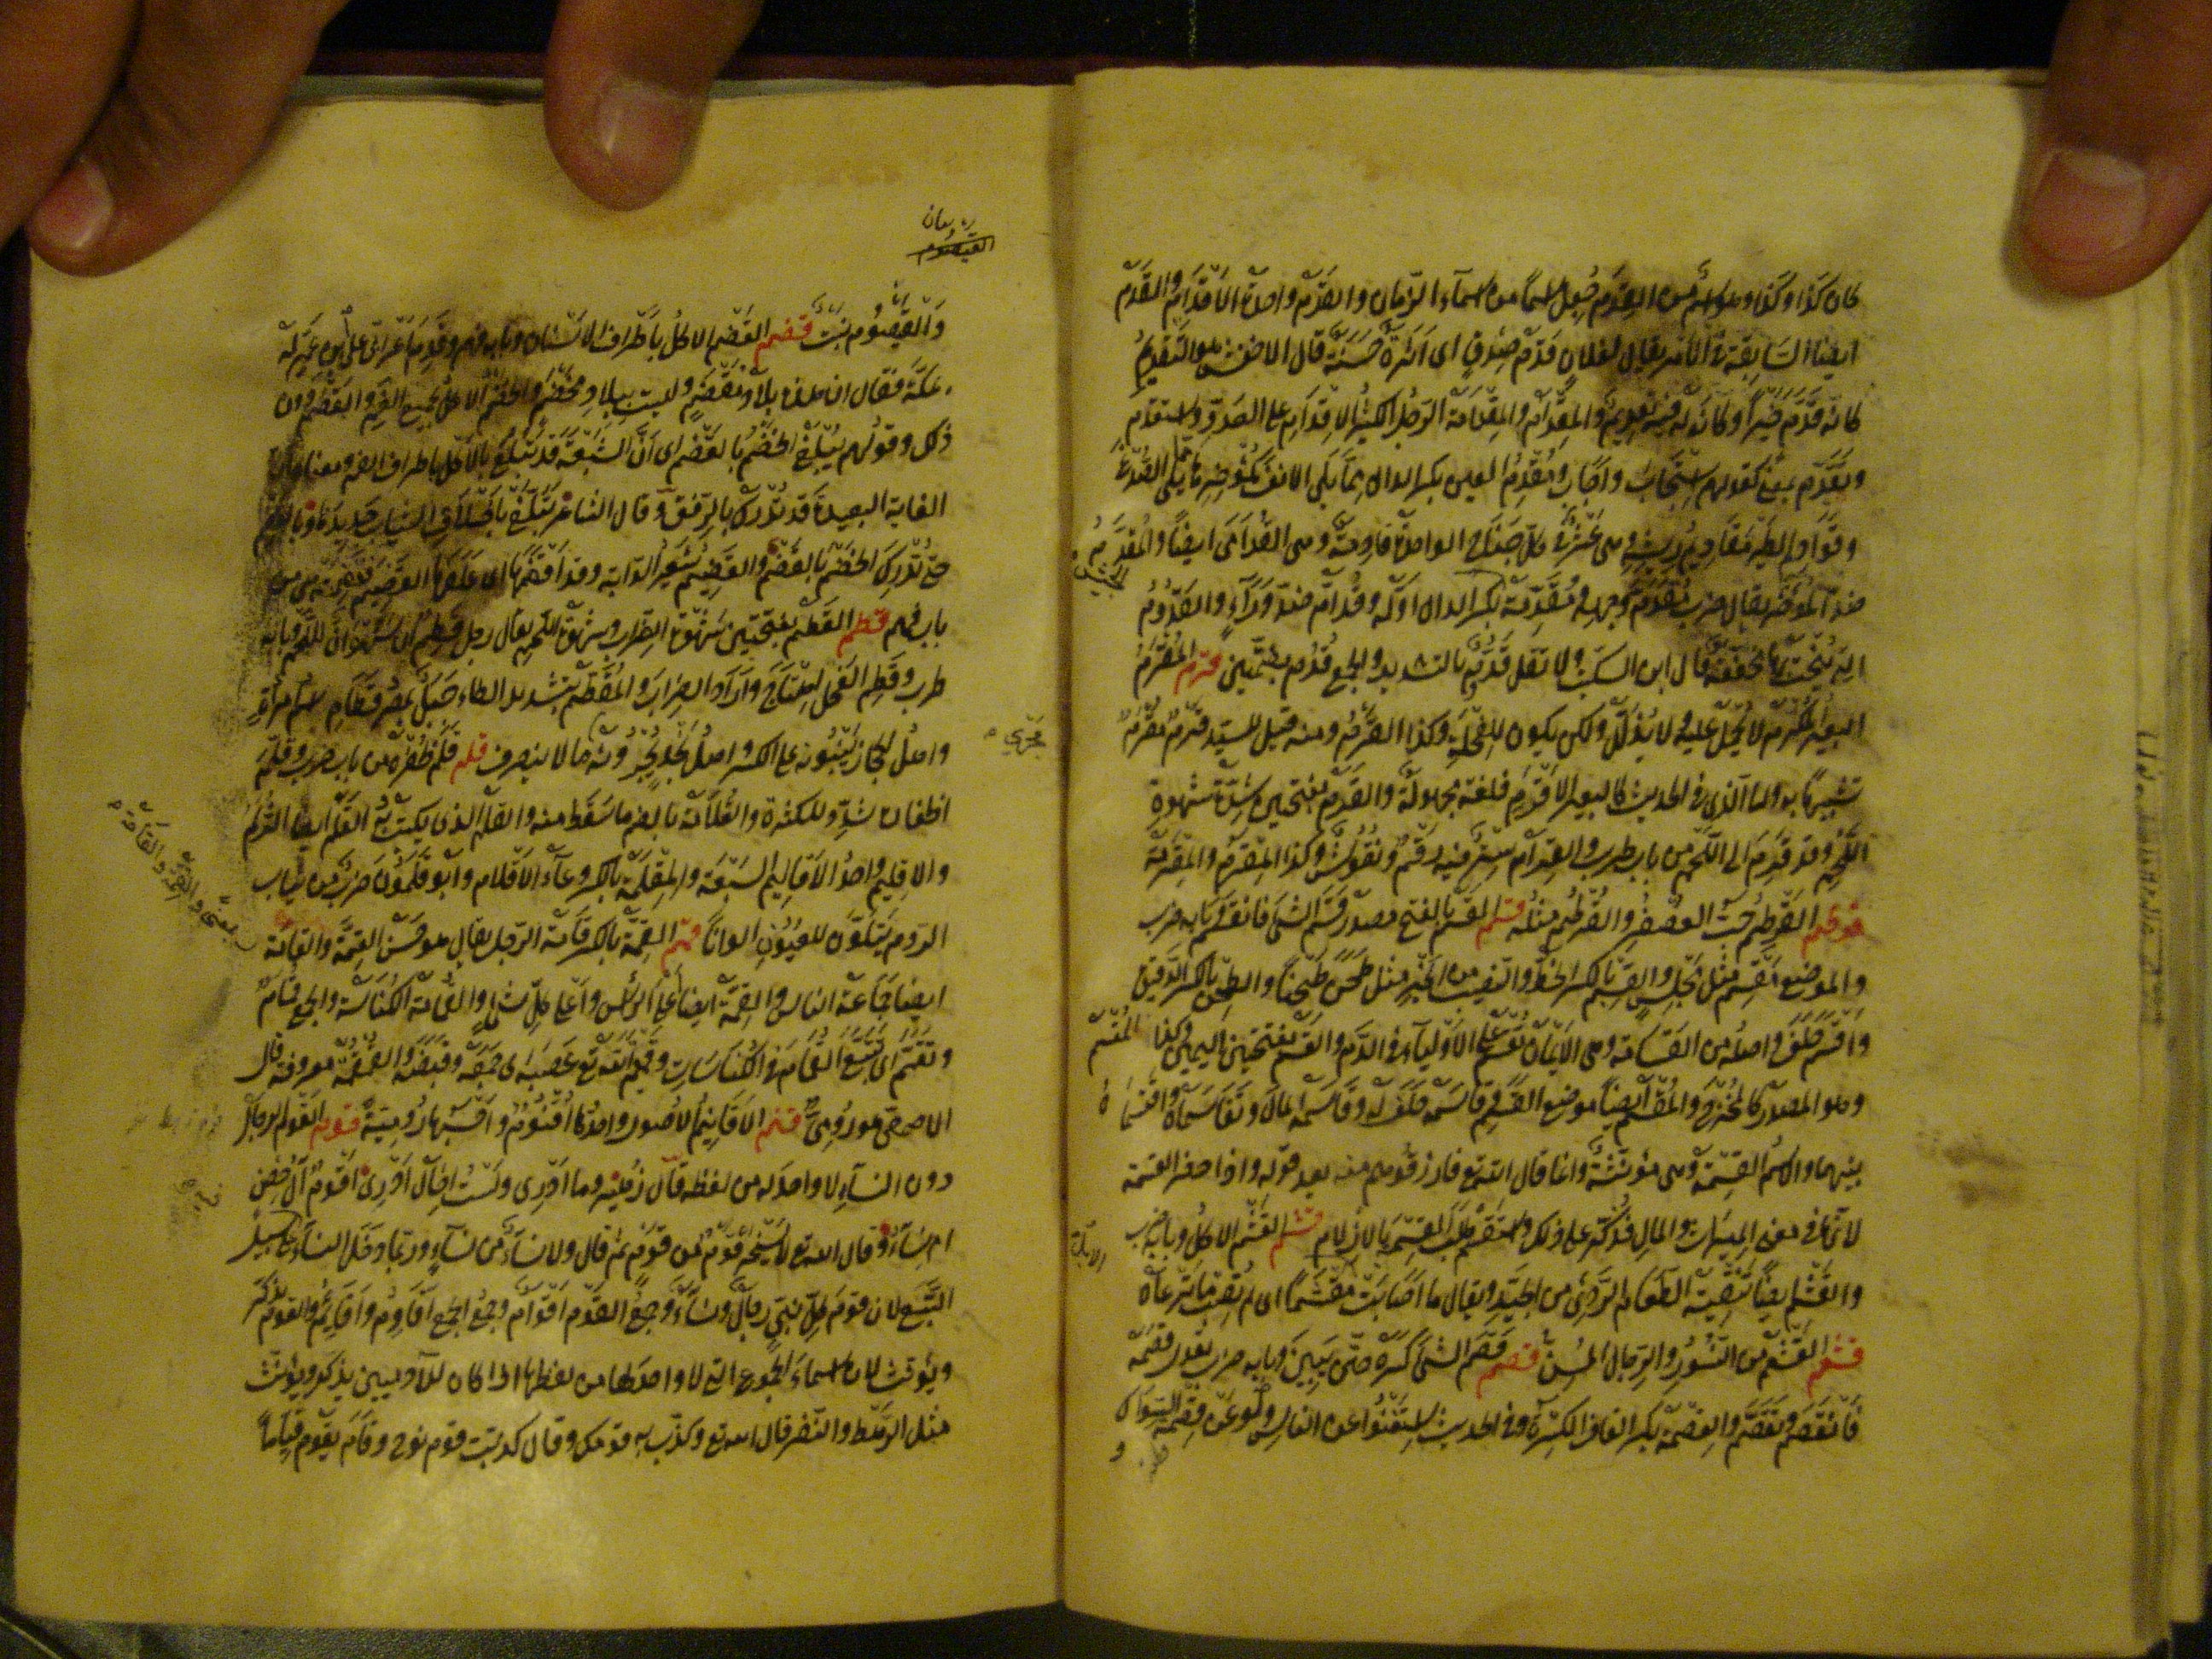 كان كذا وكذا وهو اسم من القدم جعل اسما من اسماء الزمان والقدم واحدة الاقدام والقدم
ايضا السابقة في الامر يقال لفلان قدم صدق اى اثرة حسنة قال الاخفش هو التقديم
كانه قدم خيرا وكان له فيه تقديم والمقدام والمقدامة الرجل الكثير الاقدام على العدو واستقدم
وتقدم بمعنى كقولهم استجاب واجاب ومقدم العين بكسر الدال مما يلى الانف كمؤخرها مما يلى الصدغ
وقوادم الطير مقاديم ريشه وهى عشر في كل جناح الواحدة قادمة وهى القدامى ايضا والمقدم
ضد المؤخر يقال ضرب مقدم وجهه ومقدمة الجيش بكسر الدال اوله وقدام ضد وراء والقدوم
التى ينحت بها مخففة قال ابن السكيت ولا تقل قدوم بالتشديد والجمع قدم بضمتين قرم المقرم
البعير المكرم لا يحمل عليه ولا يذلل ولكن يكون للفحلة وكذا القرم ومنه قيل للسيد قرم مقرم
تشبيها به واما الذى في الحديث كالبعير الاقرم فلغة مجهولة والقرم بفتحتين شدة شهوة
اللحم وقد قرم الى اللحم من باب طرب والقرام ستر فيه رقم ونقوش وكذا المقرم والمقرمة
قرطم القرطم حب العصفر والقرطم مثله قسم القسم بالفتح مصدر قسم الشئ فانقسم وبابه ضرب
والموضع مقسم مثل مجلس والقسم بالكسر الحظ والنصيب من الخير مثل طحن طحنا والطحن بالكسر الدقيق
واقسم حلف واصله من القسامة وهى الايمان تقسم على الاولياء في الدم والقسم بفتحتين اليمين وكذا المقسم
وهو المصدر كالمخرج والمقسم ايضا موضع القسم وقاسمه حلف له وقاسمه المال وتقاسماه واقتسماه
بينهما والاسم القسمة وهى مؤنثة وانما قال الله تع فارزقوهم منه بعد قوله واذا حضر القسمة
لانها في معنى الميراث والمال فذكر على ذلك واستقسم طلب القسم بالازلام قشم القشم الاكل وبابه ضرب
والقشم ايضا تنقية الطعام الردئ من الجيد ويقال ما اصابت الابل مقشما اى لم تصب ما ترعاه
قشعم القشعم من النسور والرجال المسن قصم قصم الشئ كسره حتى يبين وبابه ضرب تقول قصمه
فانقصم وتقصم والقصمة بكسر القاف الكسرة وفي الحديث استغنوا عن الناس ولو عن قصمة السواك
والقيصوم نبت قضم القضم الاكل باطراف الاسنان وبابه فهم وقدم اعرابى على ابن عم له
بمكة فقال ان هذه بلاد مقضم وليست ببلاد مخضم والخضم الاكل بجميع الفم والقضم دون
ذلك وقولهم يبلغ الخضم بالقضم اى ان الشبعة قد تبلغ بالاكل باطراف الفم ومعناه ان
الغاية البعيدة قد تدرك بالرفق وقال الشاعر تبلغ باخلاق الثياب جديدها وبالقضم
حتى تدرك الخضم بالقضم والقضيم شعير الدابة وقد اقضمها اى علفها القضيم فقضمته هى من
باب فهم قطم القطم بفتحتين شهوة الضراب وشهوة اللحم يقال رجل قطم اى شهوان للحم وبابه
طرب وقطم الفحل اهتاج واراد الضراب والمقطم بتشديد الطاء جبل بمصر قطام اسم امرأة
واهل الحجاز يبنونه على الكسر واهل نجد يجرونه مجرى ما لا ينصرف قلم قلم ظفره من باب ضرب وقلم
اظفاره شدد للكثرة والقلامة بالضم ما سقط منه والقلم الذى يكتب به والقلم ايضا الزلم
والاقليم واحد الاقاليم السبعة والمقلمة بالكسر وعاء الاقلام وابو قلمون ضرب من ثياب
الروم يتلون للعيون الوانا قمم القمة بالكسر قامة الرجل يقال هو حسن القمة والقامة
ايضا جماعة الناس والقمة ايضا اعلى الرأس واعلى كل شئ والقمامة الكناسة والجمع قمام
وتقمم اى تتبع القمام في الكناسات وقمقم الله تع عصبه اى جمعه وقبضه والقمقمة معروفة قال
الاصمعى هو رومى قنم الاقانيم الاصول واحدها اقنوم واحسبها رومية قوم القوم الرجال
دون النساء لا واحد له من لفظه قال زهير وما ادرى ولست اخال ادرى اقوم آل حصن
ام نساء وقال الله تع لا يسخر قوم من قوم ثم قال ولا نساء من نساء وربما دخل النساء على سبيل
التبع لان قوم كل نبى رجال ونساء وجمع القوم اقوام وجمع الجمع اقاوم واقايم والقوم يذكر
ويؤنث لان اسماء الجموع التى لا واحد لها من لفظها اذا كان للآدميين يذكر ويؤنث
مثل الرهط والنفر قال الله تع وكذب به قومك وقال كذبت قوم نوح وقام يقوم قياما